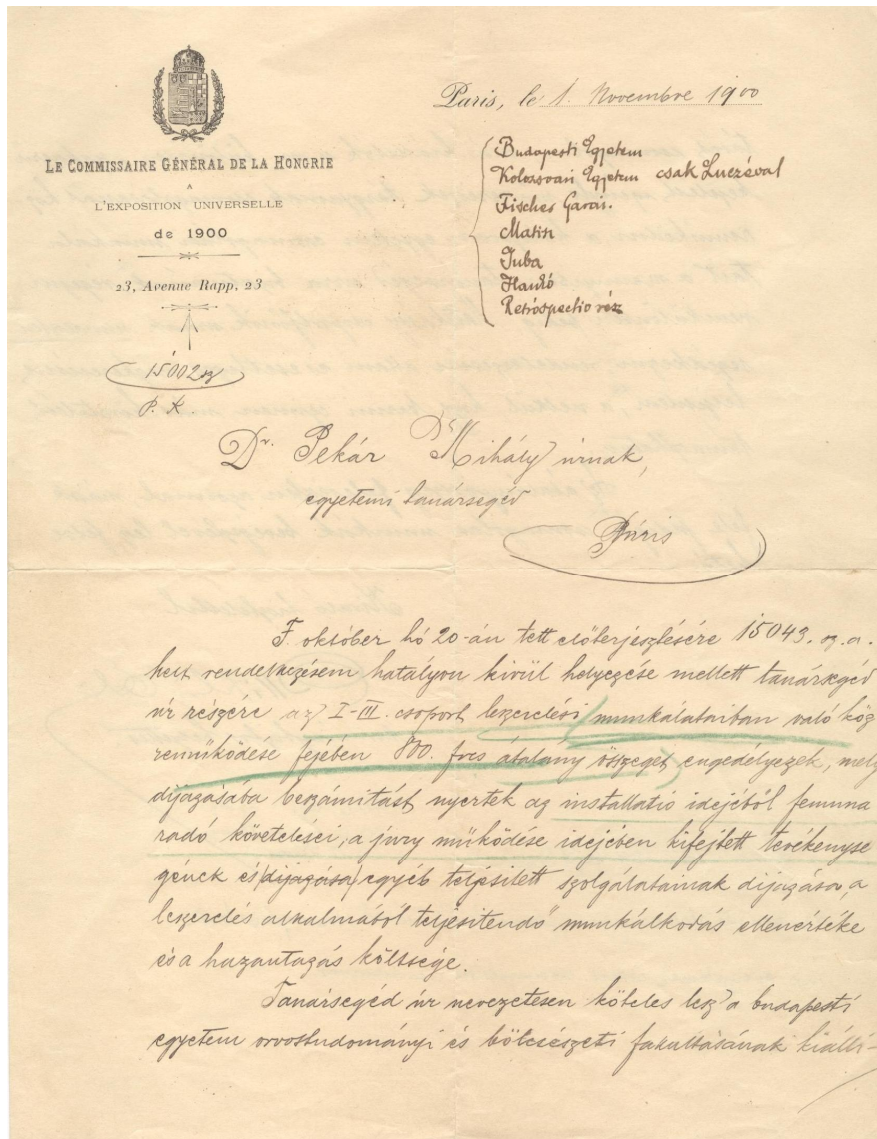 LE COMMISSAIRE GÉNÉRAL DE LA HONGRIE
A
L'EXPOSITION UNIVERSELLE
de 1900
23, Avenue Rapp, 23
15002 sz
P. K.
Paris, le 1. Novembre 1900
Budapesti Egyetem
Kolozsvári Egyetem csak Luczéval
Fischer Garás.
Matin
Juba
Hankó
Retrospectio rész
Dr. Pekár Mihály úrnak,
egyetemi tanársegéd
Páris
F. október hó 20-án tett előterjesztésére 15043. sz. a.
kelt rendelkezésem hatályon kivül helyezése mellett tanársegéd
úr részére az I-III. csoport leszerelési munkálataiban való köz
reműködése fejében 800. frcs átalány összeget engedélyezek, mely
díjazásába beszámitást nyertek az installatió idejéből fennma
radó követelései, a jury működése idejében kifejtett tevékenysé
gének és (díjazása) egyéb teljesitett szolgálatainak díjazása, a
leszerelés alkalmából teljesitendő munkálkodás ellenértéke
és a hazautazás költsége.
Tanársegéd úr nevezetesen köteles lesz a budapesti
egyetem orvostudományi és bölcsészeti fakultásának kiálli-